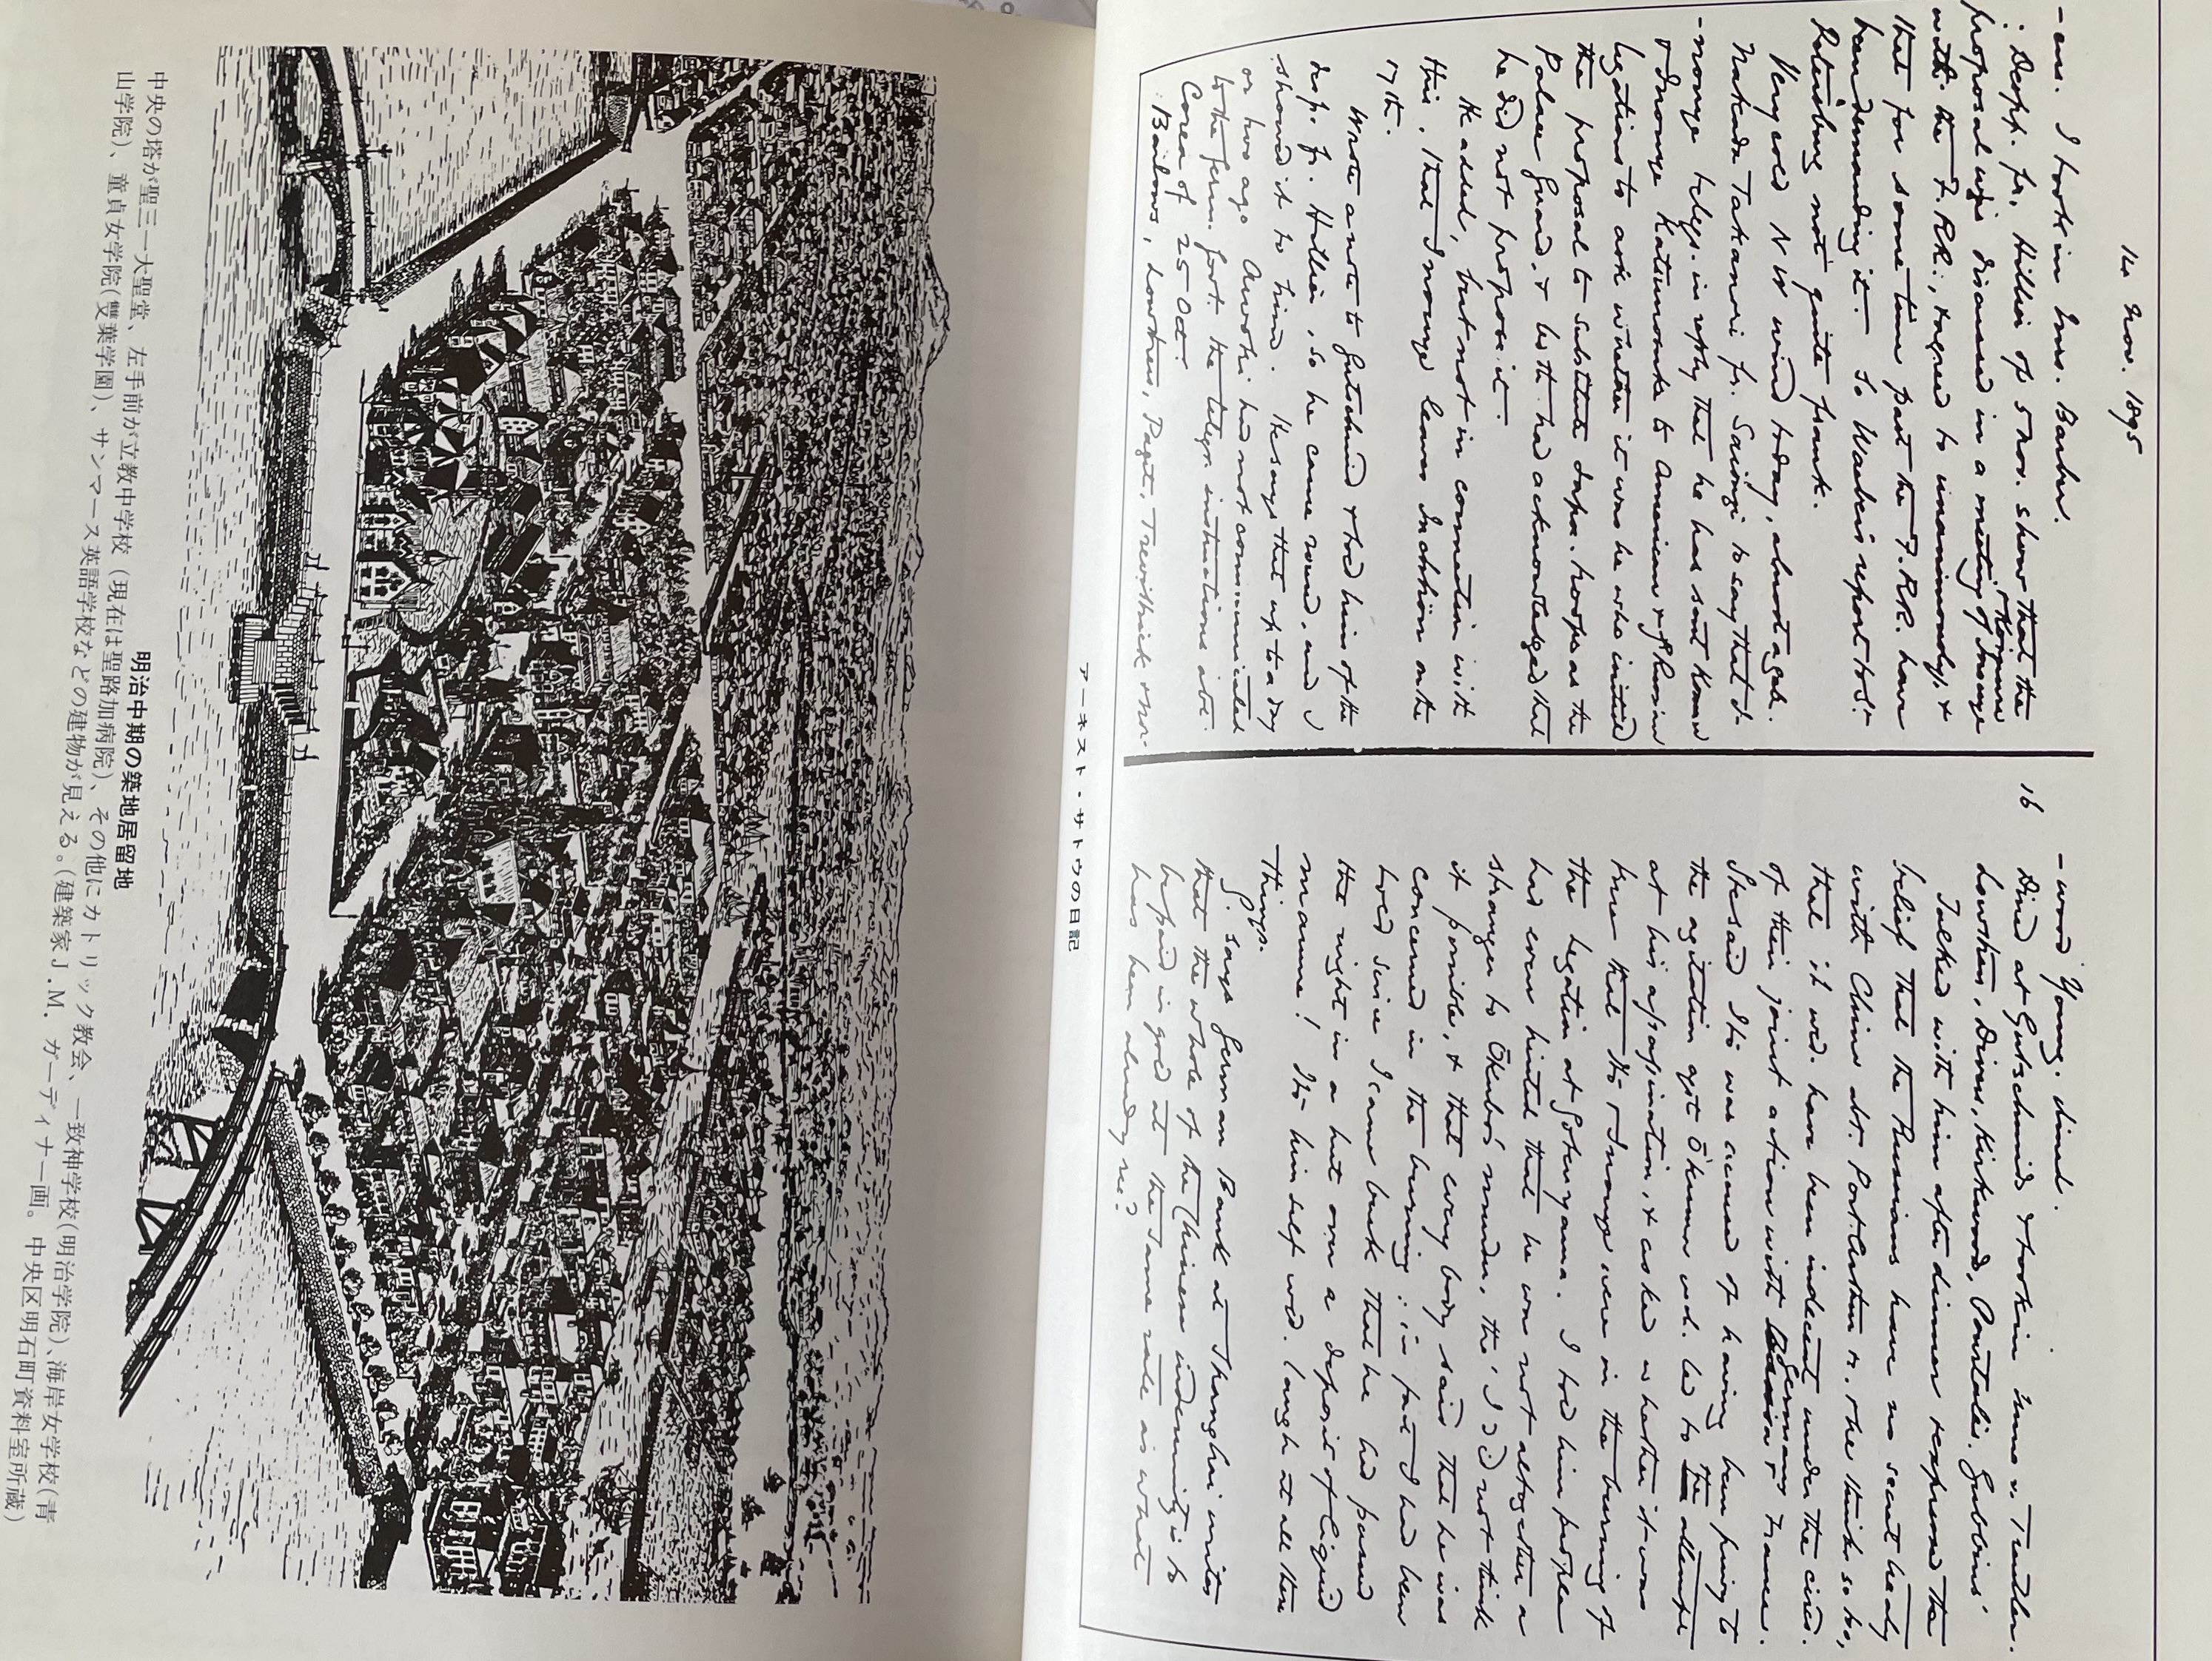 14 Nov. 1895
-ens. I took in Mrs. Barber.
Desp. fr. Hillier of 5 Nov. shows that the
proposal was discussed in a meeting of Inouye, Komura
with the F. RR:, & agreed to unanimously, &
that for some time past the F. RR. have
been demanding it. So Waeber's report to St.
Petersburg not quite frank.
Very cold N W wind today, almost a gale.
Nakada Takanori fr. Saionji to say that I-
-nouye telegr. in reply that he has sent Komura
& Inouye Katsunosuke to American & Russian
legations to ask whether it was he who initiated
the proposal to substitute Japn. troops as the
Palace Guard, & both had acknowledged that
he did not propose it.
He added, but not in connection with
this, that Inouye leaves Inchhön on the
17th.
Wrote a note to Gutschmid & told him of the
desp. fr. Hillier, so he came round, and I
showed it to him. He says that up to a day
or two ago Awoki had not communicated
to the Germ. Govt. the telegr. instructions abt.
Corea of 25 Oct.
Barlows, Lowthers, Paget, Trevithick & Nor-
アーネスト・サトウの日記
16
-wood Young dined.
Dined at Gutschmids & took in Mme v. Treutler.
Lowthers, Divers, Kirkwood, Pourtalès, Gubbins'
Talked with him after dinner & expressed the
belief that the Russians have no secret treaty
with China abt. Port Arthur &c. & he thinks so too,
that it wd. have been indecent under the circs.
of their joint action with Germany & France.
He said Ito was accused of having been privy to
the agitation agst Ōkuma wh. led to the attempt
at his assassination, & asked whether it was
true that Ito & Inouye were in the burning of
the legation at Gotenyama. I told him people
had even hinted that he was not altogether a
stranger to Ōkubo's murder, tho' I did not think
it possible, & that every body said that he was
concerned in the burning: in fact I had been
told since I came back that he had passed
the night in a hut over a deposit of liquid
manure! Ito himself wd. laugh at all these
things.
G. says German Bank at Shanghai writes
that the whole of the Chinese indemnity is to
be paid in gold at the same rate as what
has been already rec?
明治中期の築地居留地
中央の塔が聖三一大聖堂、左手前が立教中学校(現在は聖路加病院)、その他にカトリック教会、一致神学校(明治学院)、海岸女学校(青
山学院)、童貞女学院(雙葉学園)、サンマース英語学校などの建物が見える。(建築家J.M.ガーディナー画。中央区明石町資料室所蔵)